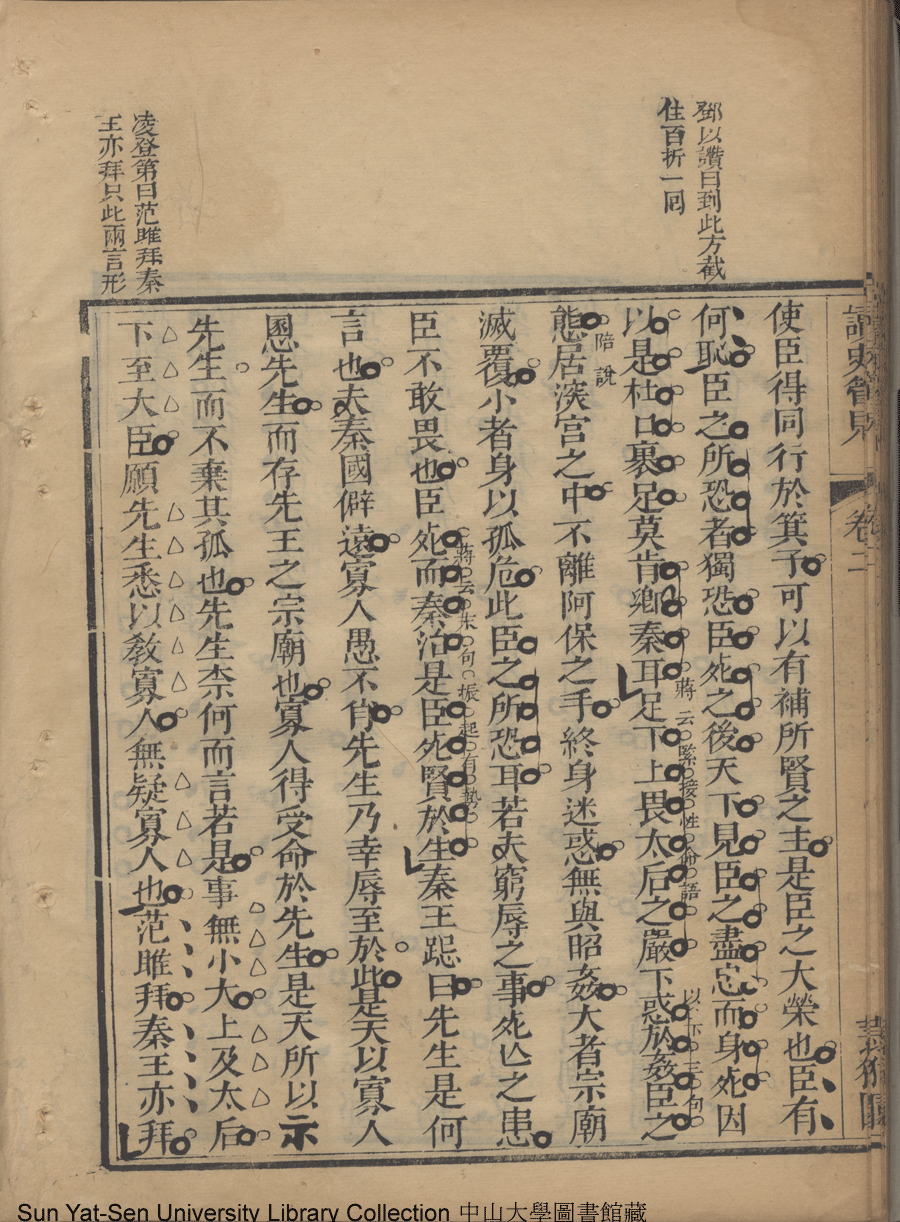 鄧以讚曰到此方截
住百折一囘
凌登第曰范雎拜秦
王亦拜只此兩言形
讀史管見
卷二
使臣得同行於箕子可以有補所賢之主是臣之大榮也臣有
何恥臣之所恐者獨恐臣死之後天下見臣之盡忠而身死因
以是杜口裹足莫肯鄉秦耳足下上畏太后之嚴下惑於姦臣之
蔣云緊接性命語
以下主句
態居深宮之中不離阿保之手終身迷惑無與昭姦大者宗廟
陪說
滅覆小者身以孤危此臣之所恐耳若夫窮辱之事死亾之患
臣不敢畏也臣死而秦治是臣死賢於生秦王跽曰先生是何
蔣云末句振起有勢
言也夫秦國僻遠寡人愚不肖先生乃幸辱至於此是天以寡人
慁先生而存先王之宗廟也寡人得受命於先生是天所以示
先生而不棄其孤也先生柰何而言若是事無小大上及太后
下至大臣願先生悉以教寡人無疑寡人也范雎拜秦王亦拜
Sun Yat-Sen University Library Collection 中山大學圖書館藏